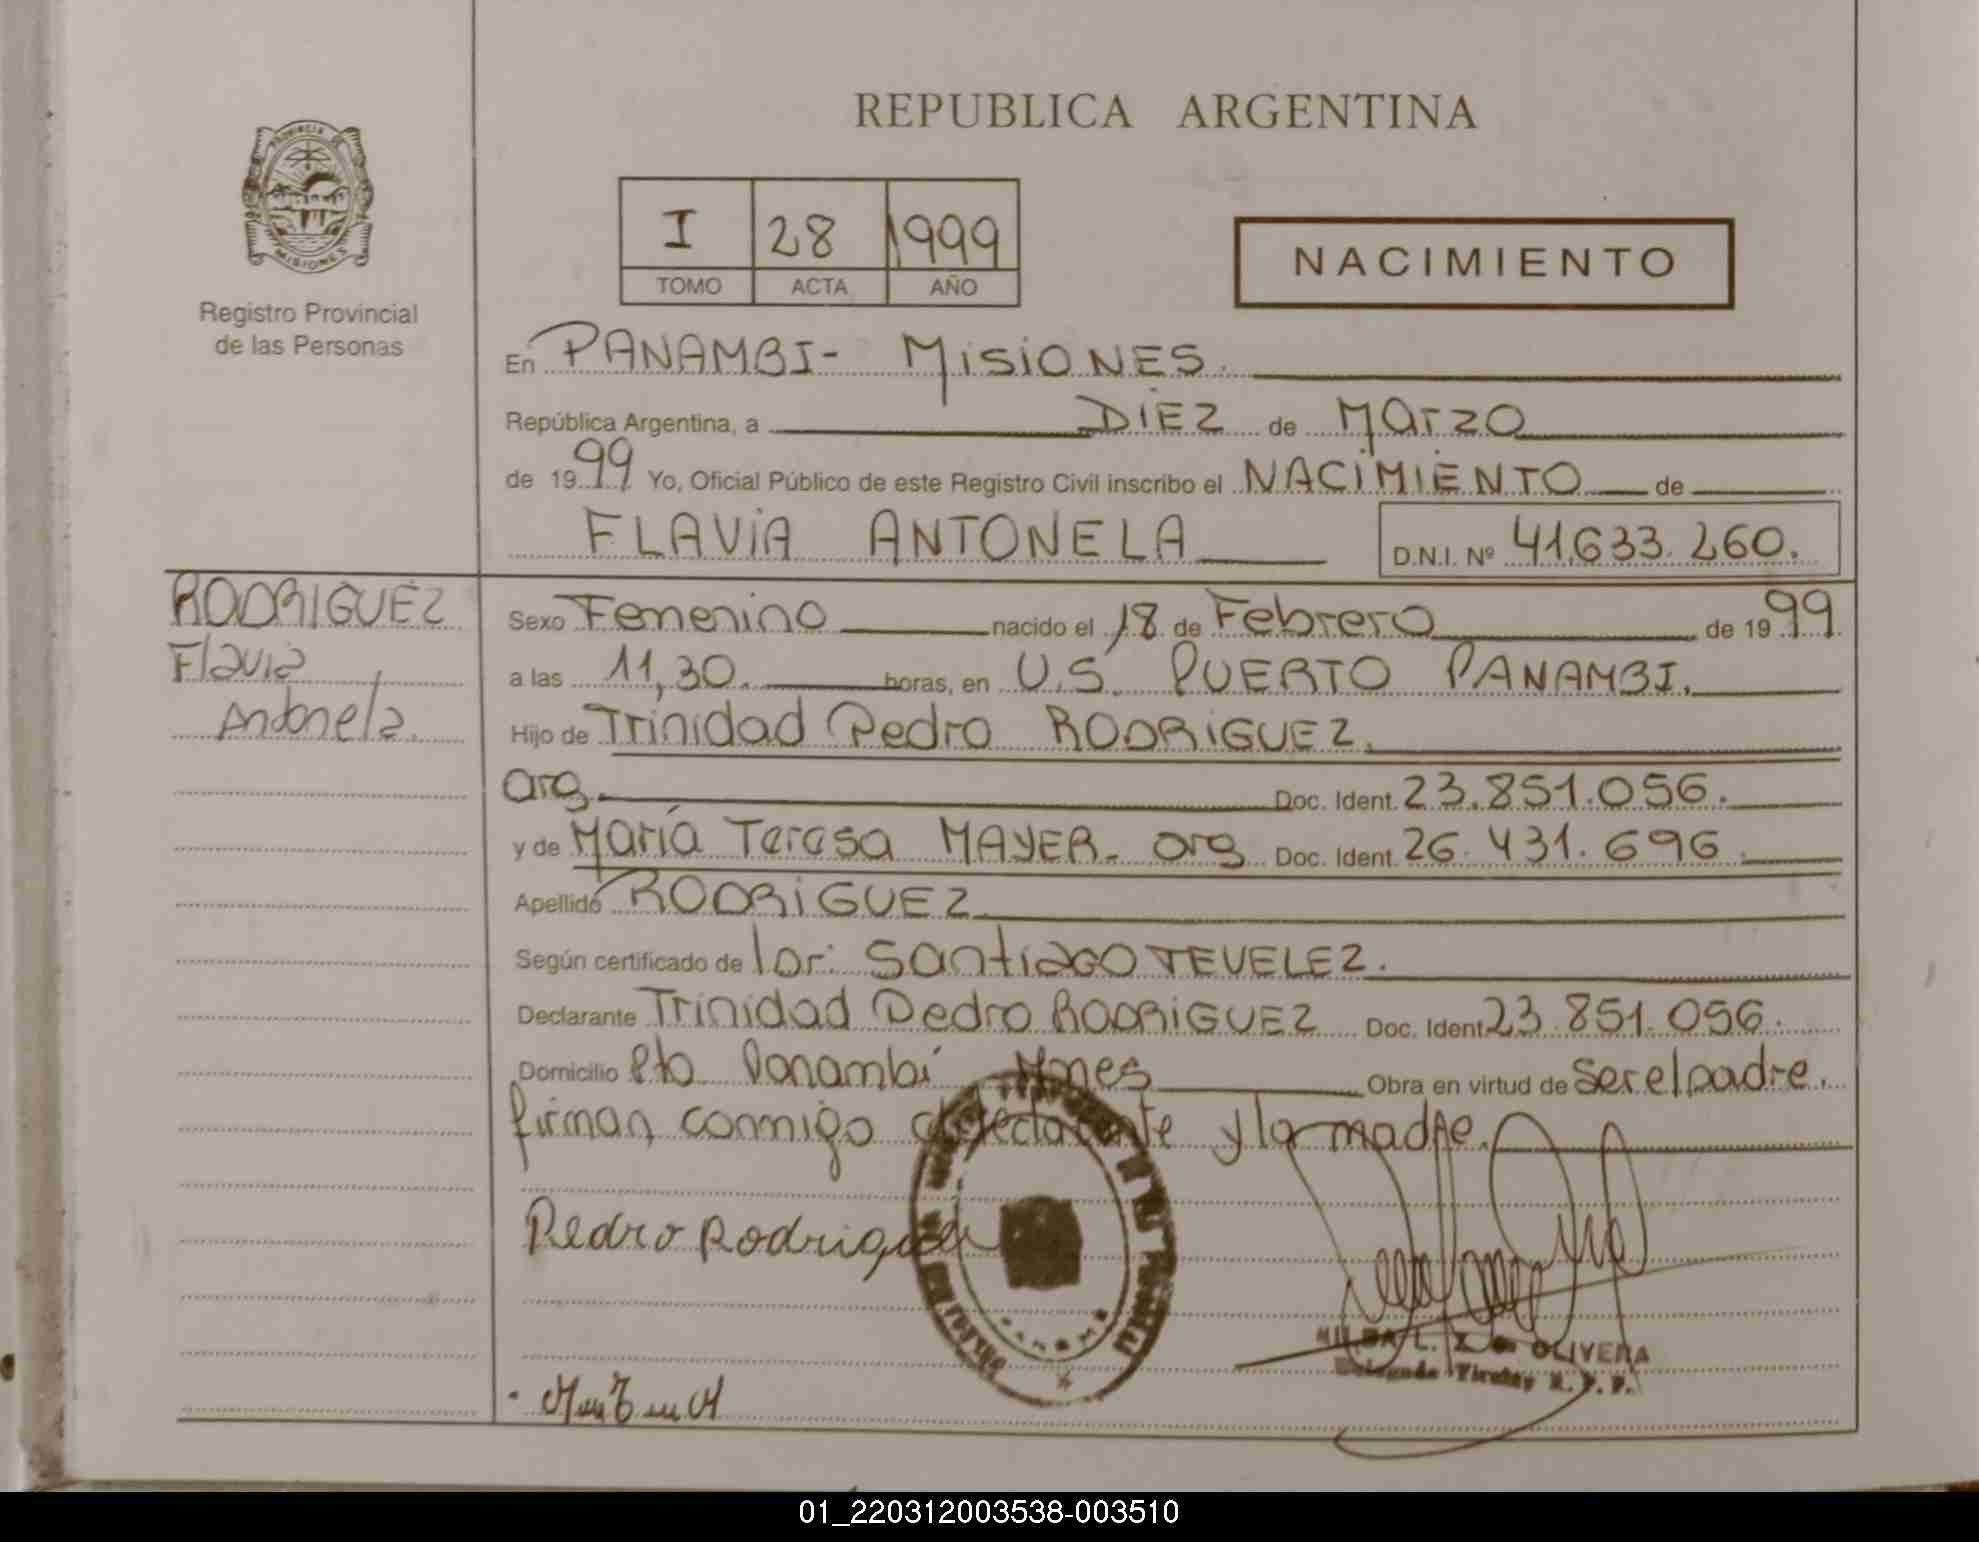 REPUBLICA ARGENTINA
PROVINCIA DE
MISIONES
Registro Provincial
de las Personas
I 28 1999
TOMO ACTA AÑO
NACIMIENTO
En PANAMBI - MISIONES.
República Argentina, a DIEZ de Marzo
de 1999 Yo, Oficial Público de este Registro Civil inscribo el NACIMIENTO de
FLAVIA ANTONELA D.N.I. Nº 41.633.260.
RODRIGUEZ
Flavia
Antonela.
Sexo Femenino nacido el 18 de Febrero de 1999
a las 11,30. horas, en U.S. PUERTO PANAMBI.
Hijo de Trinidad Pedro RODRIGUEZ.
arg. Doc. Ident. 23.851.056.
y de María Teresa MAYER - arg Doc. Ident. 26.431.696.
Apellido RODRIGUEZ
Según certificado de Santiago TEVELEZ.
Declarante Trinidad Pedro RODRIGUEZ Doc. Ident. 23.851.056.
Domicilio Pto Panambí Mnes Obra en virtud de ser el padre.
firman conmigo declarante y la madre.
Pedro Rodriguez
L. OLIVERA
01_220312003538-003510